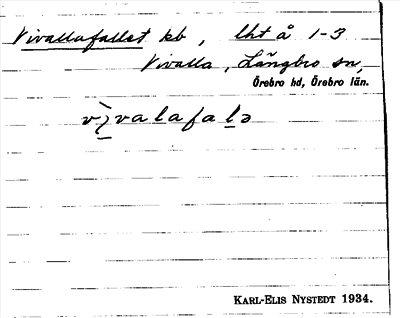 Vivallafallet kb, lht å 1-3
Vivalla, Längbro sn,
Örebro hd, Örebro län.
KARL-ELIS NYSTEDT 1934.